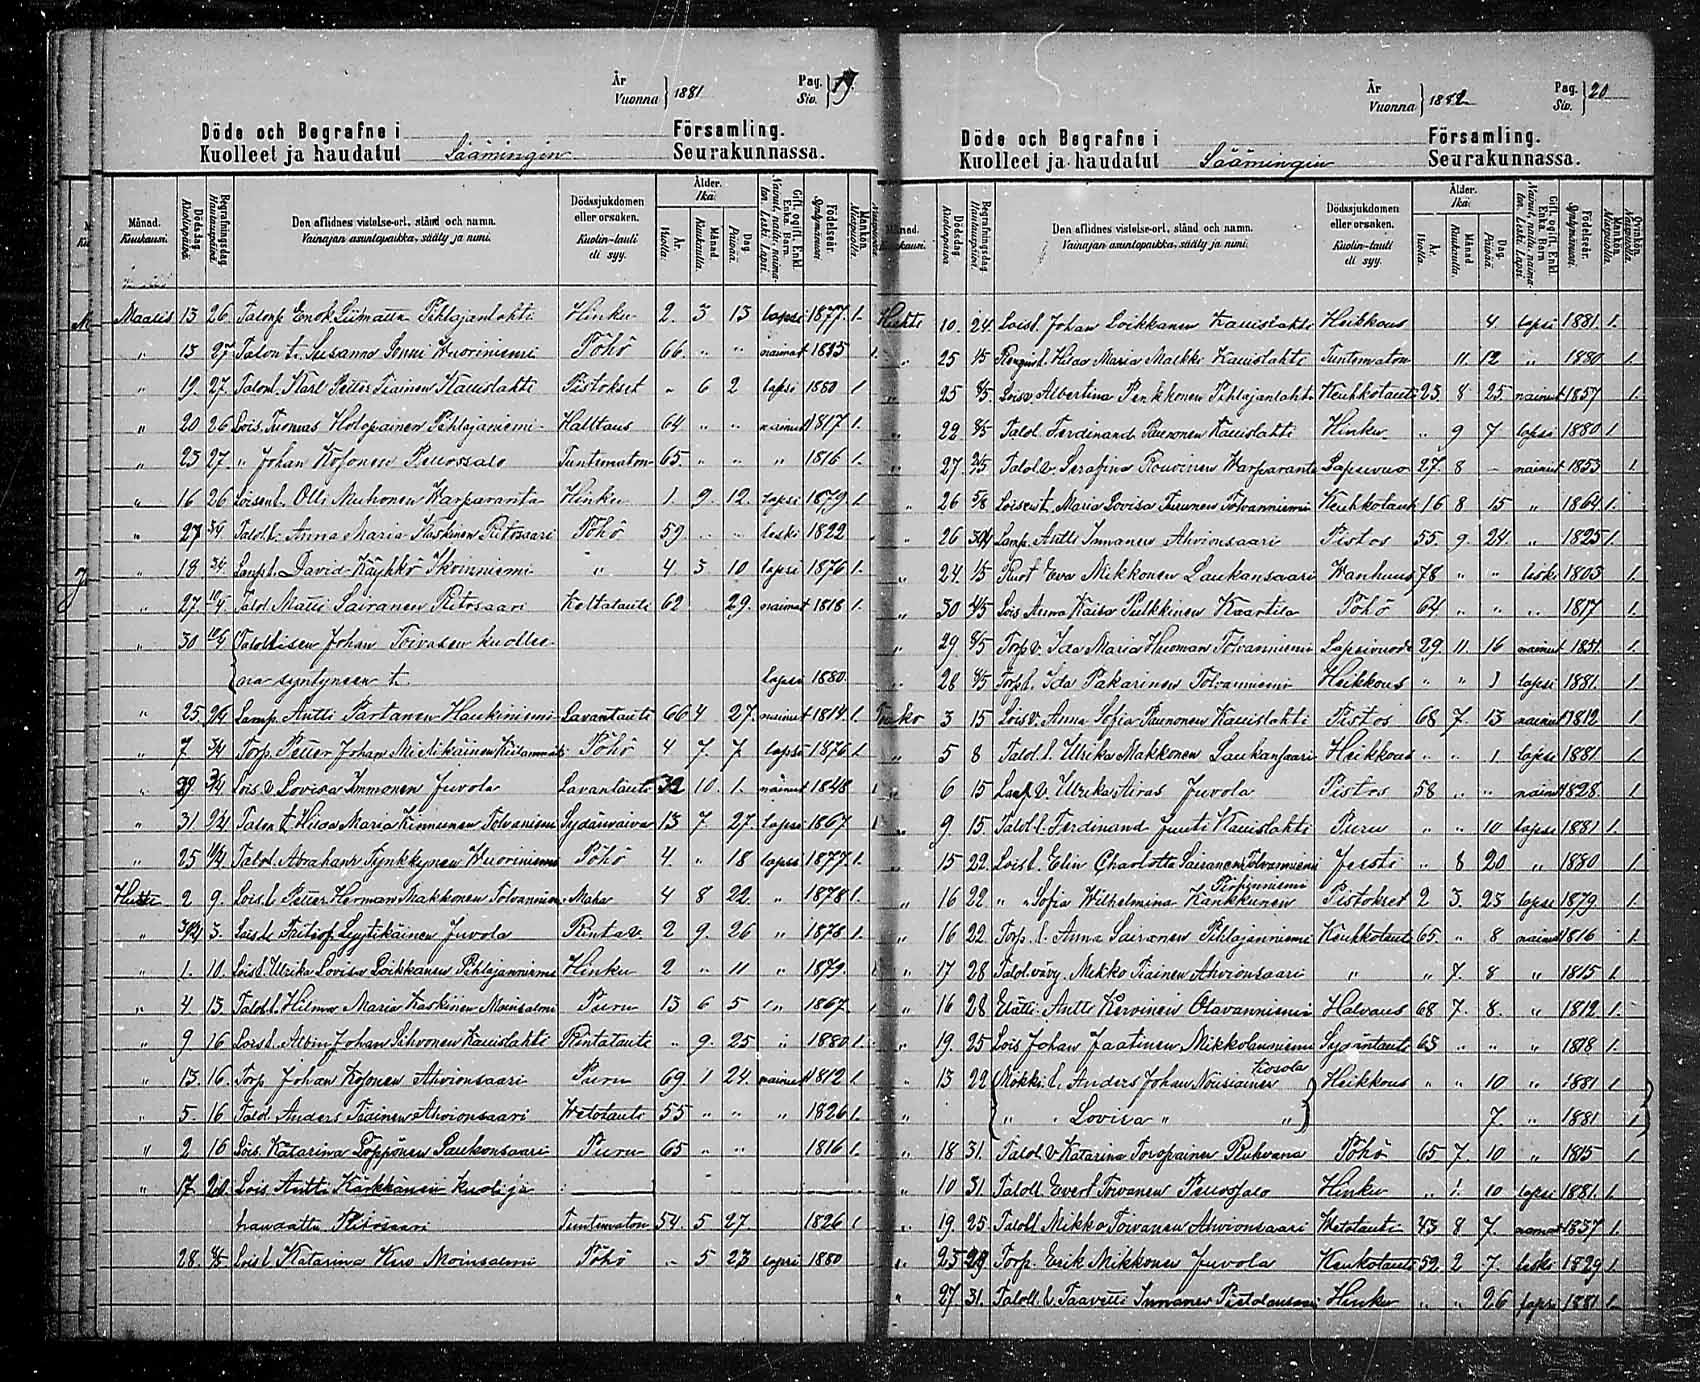 År
Vuonna } 1881
Pag.
Siv. } 19.
Döde och Begrafne i Församling.
Kuolleet ja haudatut Säämingin Seurakunnassa.
Månad. Kuukausi. Dödsdag Kuolinpäivä. Begrafningsdag Hautauspäivä. Den aflidnes vistelse-ort, stånd och namn. Vainajan asuntopaikka, sääty ja nimi. Dödssjukdomen eller orsaken. Kuolin-tauti eli syy. Ålder. Ikä. År. Vuotta. Månad. Kuukautta. Dag. Päivää. Gift, ogift, Enkl. Enka, Barn. Nainut, naitu, naimaton, Leski, Lapsi. Födelseår. Syntymävuosi Mankön. Miespuolta.
Maalis 13 26 Talonp. Enok Liimatta Pihlajanlahti Hinku 2. 3 13 lapsi 1877. 1.
" 13 27 Talon t. Susanna Jonni Wuoriniemi Pöhö 66 " " naimat 1815
" 19. 27. Talonl. Karl Petter Tiainen Kauislahti Pistokset " 6 2 lapsi 1880 1
" 20 26 Lois. Tuomas Holopainen Pihlajaniemi Halltaus 64 " " naimut 1817 1.
" 23 27. " Johan Kosonen Peuossalo Tuntematon 65. " " " 1816 1.
" 16 26 Loisenl. Olli Muhonen Warparanta Hinku 1. 9. 12. lapsi 1879. 1
" 27 3/4 Talol. l. Anna Maria Kaskinen Ritosaari Pöhö 59 " " leski 1822
" 18 3/4 Lampl. David Käyhkö Ikoinniemi " 4. 3 10 lapsi 1876 1.
" 27. 10/4 Talol Matti Sairanen Ritosaari Koltatauti 62 29. naimat 1818 1.
" 30 10/4 { Talollisen Johan Toivasen kuollee-
na syntyneen t. lapsi 1880.
" 25. Lamp. Antti Partanen Haukiniemi Lavantauti 66 4 27. naimut 1814. 1.
" 7 3/4 Torp. Petter Johan Miettikäinen Pöhö 4 7. 7 lapsi 1876 1.
" 29 3/4 Lois v Lovisa Immonen Juvola Lavantauti 32 10. 1. nainut 1848
" 31 Talon t. Hilda Maria Kinnunen Tolvanniemi Sydänvaiva 13 7 27. lapsi 1867
" 25 Talol. Abraham Tynkkynen Wuoriniemi Pöhö 4. " 18 lapsi 1877. 1.
Huhti 2 9. Lois. l. Petter Herman Makkonen Tolvanniemi Maha 4 8 22. " 1878 1.
" 3. Lois l. Fritiof Lyytikäinen Juvola Rinta t. 2 9. 26 " 1878 1.
" 1. 10. Lois l. Ulrika Lovisa Loikkanen Pihlajanniemi Hinku 2 " 11 " 1879.
" 4. 13. Talol. l. Hilma Maria Kaskinen Moinsalmi Puru 13 6 5 " 1867.
" 9 16 Lois l. Albin Johan Sihvonen Kauislahti Rintatauti " 9. 25 " 1880. 1.
" 13. 16. Torp Johan Kosonen Ahvionsaari Puru 69 1 24. naimut 1812 1.
" 5. 16 Talol. Anders Tiainen Ahvionsaari Wetotauti 55 " " " 1826 1.
" 2 10 Lois. Katarina Löppönen Laukonsaari Puru 65 " " 1816 1.
" 17. 20. Lois Antti Kärkkänen kuoli ja
haudattu Ritosaari Tuntematon 54. 5 27 1826 1
28. 8/5 Lois l Katarina Kiro Moinsalmi Pöhö " 5 23 lapsi 1880
År
Vuonna } 1882
Pag.
Siv. } 20
Döde och Begrafne i Församling.
Kuolleet ja haudatut Säämingin Seurakunnassa.
Månad. Kuukausi. Dödsdag Kuolinpäivä Begrafningsdag Hautauspäivä. Den aflidnes vistelse-ort, stånd och namn. Vainajan asuntopaikka, sääty ja nimi. Dödssjukdomen eller orsaken. Kuolin-tauti eli syy. Ålder. Ikä. År. Vuotta. Månad. Kuukautta. Dag. Päivää. Gift, ogift, Enkl. Enka, Barn. Nainut, naitu, naimaton, Leski, Lapsi. Födelseår. Syntymävuosi Mankön. Miespuolta. Qvinkön. Vaimopuolta.
Huhti 10. 24. Lois l. Johan Loikkanen Kauislahti Heikkous 4. lapsi 1881. 1.
" 25 1/5 Hilda Maria Malkki Kauislahti Tuntematon 11. 12 " 1880 1.
" 25 8/5. Lois v. Albertina Penkkonen Pihlajanlahti Keuhkotauti 23. 8 25. nainut 1857 1.
" 22 8/5 Talol. Ferdinand Paunonen Kauislahti Hinku " 9 7 lapsi 1880 1.
" 27. Talol. v. Serafina Rouvinen Warparanta Lapsivuo 27. 8 - nainut 1853 1.
" 26 5/8 Lois v t. Maria Lovisa Turunen Tolvanniemi Keuhkotauti 16 8 15 " 1864 1.
" 26 Lamp. Antti Inmanen Ahvionsaari Pistos 55. 9. 24. " 1825 1.
" 24. 1/5 Ruot Eva Mikkonen Laukansaari Wanhuus 78 " " leski 1803 1.
" 30 Lois Anna Kaisa Pulkkinen Kaartila Pöhö 64 " " " 1817 1.
" 29 8/5 Torp v. Ida Maria Huoman Tolvanniemi Lapsivuode 29 11. 16 nainut 1851. 1.
" 28 8/5 Torp l. Ida Pakarinen Tolvanniemi Heikkous " " 1 lapsi 1881. 1.
Touko 3 15 Lois v. Anna Sofia Paunonen Kauislahti Pistos 68 7. 13 nainut 1812 1.
" 5 8 Talol. l. Ulrika Makkonen Laukansaari Heikkous " " 1 lapsi 1881. 1.
" 6 15 v. Ulrika Airas Juvola Pistos 58 " " nainut 1828. 1.
" 9. 15. Talol. l. Ferdinand Juuti Kauislahti Puru " " 10 lapsi 1881 1.
" 15 22. Lois l. Elin Charlotta Sairanen Tolvanniemi " 8 20 " 1880 1.
" 16 22. " " Sofia Wilhelmina Kankkunen Pirpinniemi Pistokset 2 3. 23 lapsi 1879 1.
" 16 22. Torp. l. Anna Sairanen Pihlajanniemi Keuhkotauti 65. " 8 nainut 1816 1.
" 17 28 Talol. vävy. Mikko Tiainen Ahvionsaari " " 7. 8 " 1815 1
" 16 28 Elätti Antti Kervinen Otavanniemi Halvaus 68 7. 8. " 1812. 1.
" 19. 25 Lois Johan Jaatinen Mikkolanniemi Sydäntauti 63 " " " 1818 1.
" 13 22 { Mökki. l. Anders Johan Nousiainen Kosola } Heikkous " " 10 " 1881 1. }
" { " " Lovisa " " } 7. " 1881 1 }
" 18 31. Talol v Katarina Toropainen Ruhvana Pöhö 65 7. 10 " 1815 1.
" 10 31. Taloll. Evert Toivanen Peuossalo Hinku " 1. 10 lapsi 1881. 1.
" 19 25. Taloll Mikko Toivanen Ahvionsaari Wetotauti 43 8 7. 1837 1.
" 23 29 Torp. Erik Mikkonen Juvola Keuhkotauti 52. 2 7. leski 1829 1.
" 27 31. Taloll. l. Taavetti Inmanen Hinku " " 26 lapsi 1881 1.